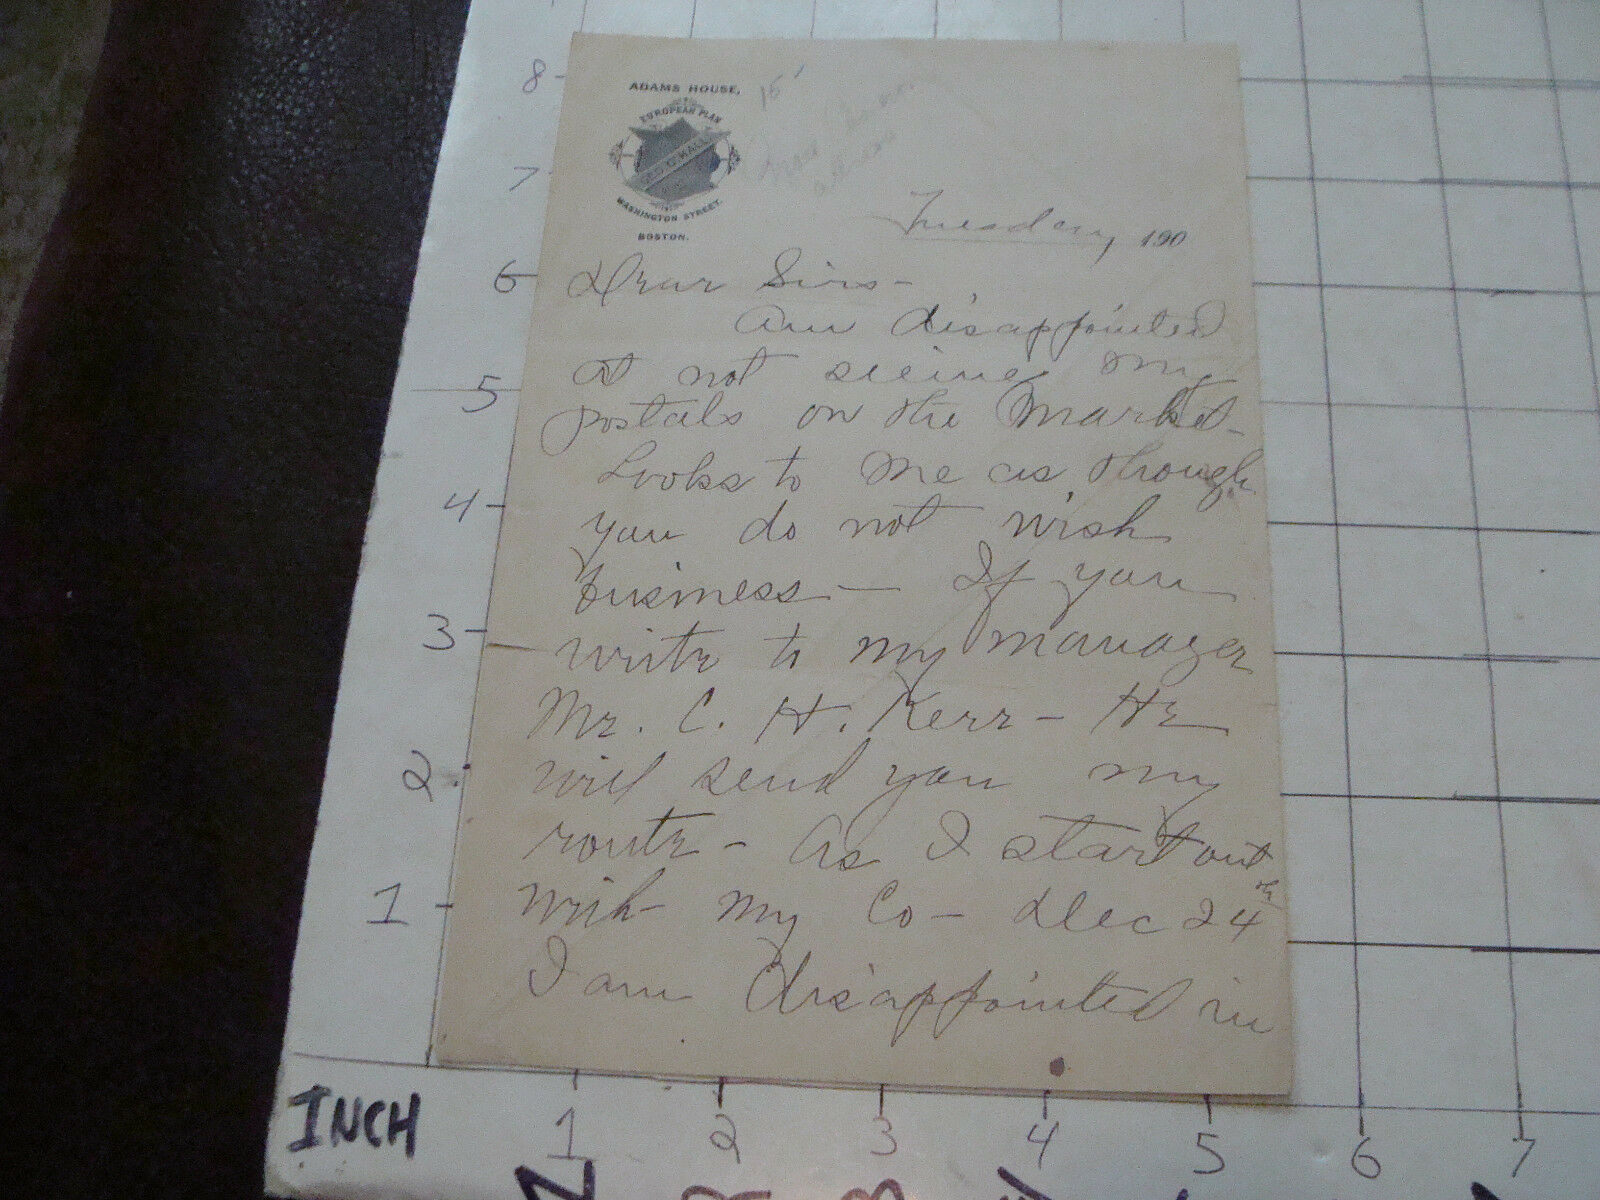 ADAMS HOUSE,
EUROPEAN PLAN
GEO. G. HALL
WASHINGTON STREET.
BOSTON.
15
Tuesday, 190
Dear Sirs -
Am disappointed
at not seeing my
postals on the Market -
Looks to me as though
you do not wish
business - If you
write to my manager
Mr. C. H. Kerr - He
will send you my
route - As I start out
with my Co - Dec 24th
I am disappointed in
8
7
6
5
4
3
2
1
INCH
1 2 3 4 5 6 7